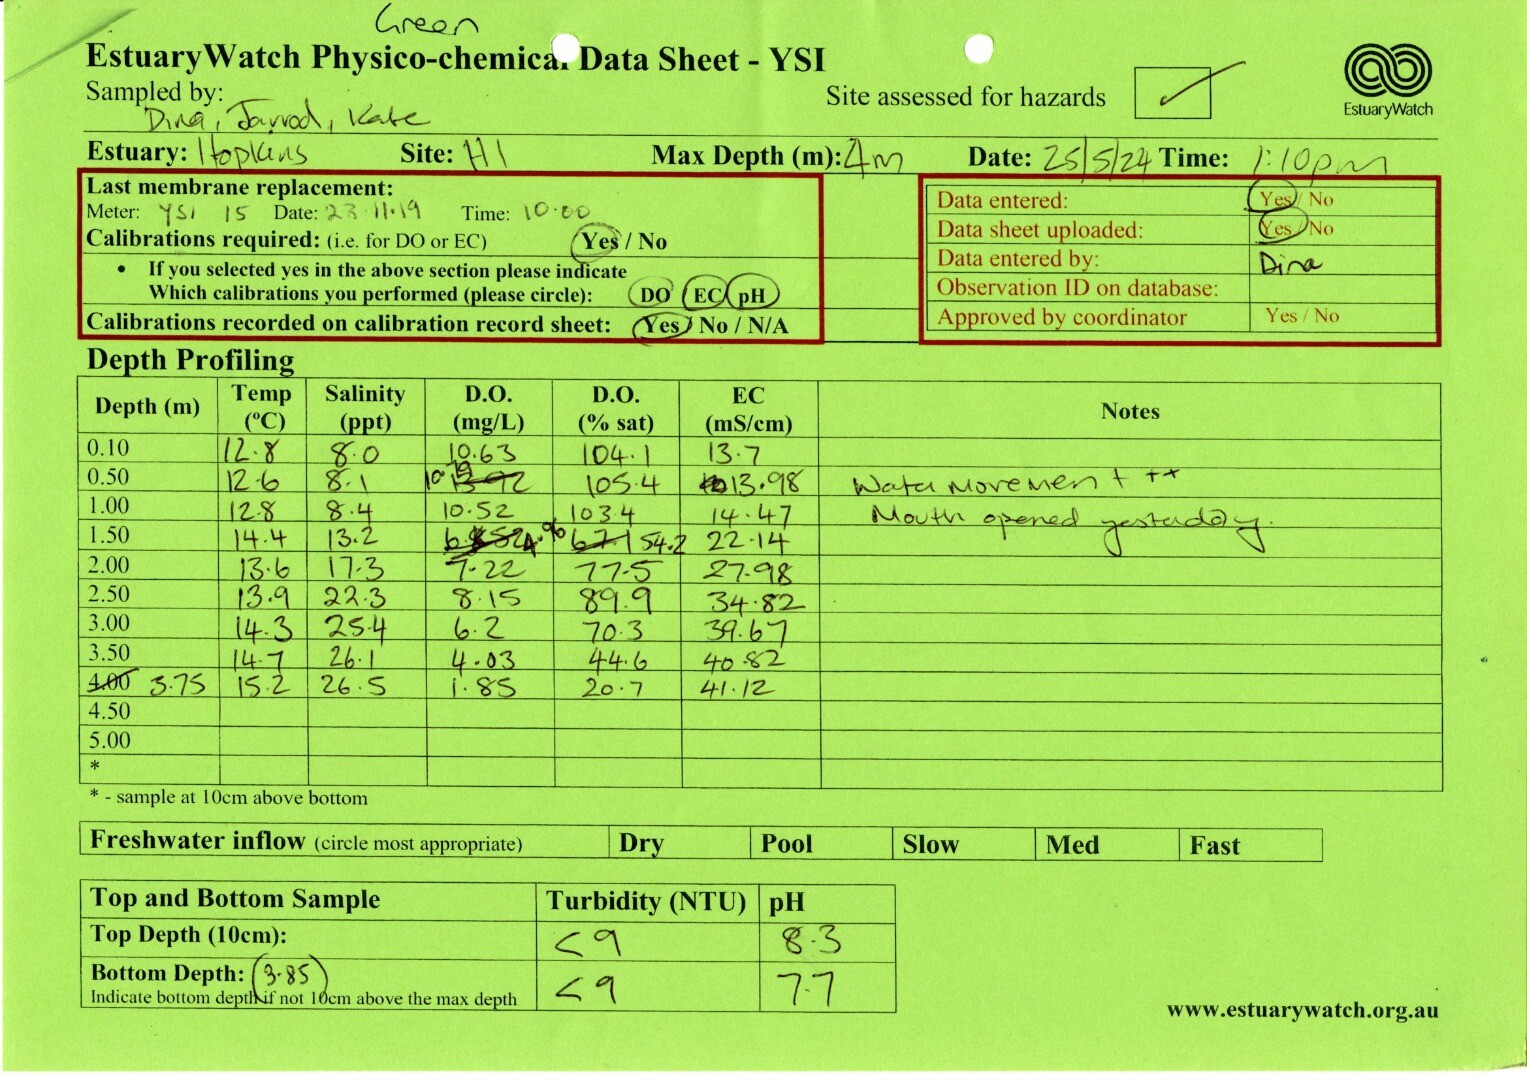 Green
EstuaryWatch Physico-chemical Data Sheet - YSI
Sampled by:
Dina, Jarrod, Kate
Site assessed for hazards
EstuaryWatch
Estuary: Hopkins Site: H1 Max Depth (m): 4m Date: 25/5/24 Time: 1:10pm
Last membrane replacement:
Meter: YSI 15 Date: 23.11.19 Time: 10.00
Calibrations required: (i.e. for DO or EC) Yes / No
• If you selected yes in the above section please indicate
Which calibrations you performed (please circle): DO EC pH
Calibrations recorded on calibration record sheet: Yes / No / N/A
Data entered: Yes / No
Data sheet uploaded: Yes / No
Data entered by: Dina
Observation ID on database:
Approved by coordinator Yes / No
Depth Profiling
Depth (m) Temp (ºC) Salinity (ppt) D.O. (mg/L) D.O. (% sat) EC (mS/cm) Notes
0.10 12.8 8.0 10.63 104.1 13.7
0.50 12.6 8.1 10.19 105.4 13.98 Water movement ++
1.00 12.8 8.4 10.52 103.4 14.47 Mouth opened yesterday.
1.50 14.4 13.2 67.1 54.2 22.14
2.00 13.6 17.3 7.22 77.5 27.98
2.50 13.9 22.3 8.15 89.9 34.82
3.00 14.3 25.4 6.2 70.3 39.67
3.50 14.7 26.1 4.03 44.6 40.82
4.00 3.75 15.2 26.5 1.85 20.7 41.12
4.50
5.00
*
* - sample at 10cm above bottom
Freshwater inflow (circle most appropriate) Dry Pool Slow Med Fast
Top and Bottom Sample Turbidity (NTU) pH
Top Depth (10cm): <9 8.3
Bottom Depth: 3.85 <9 7.7
Indicate bottom depth if not 10cm above the max depth
www.estuarywatch.org.au